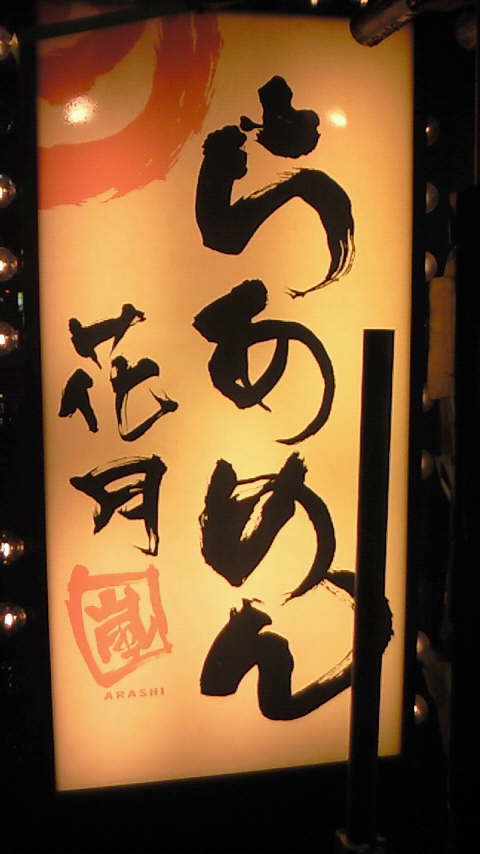 らあめん
花月
嵐
ARASHI